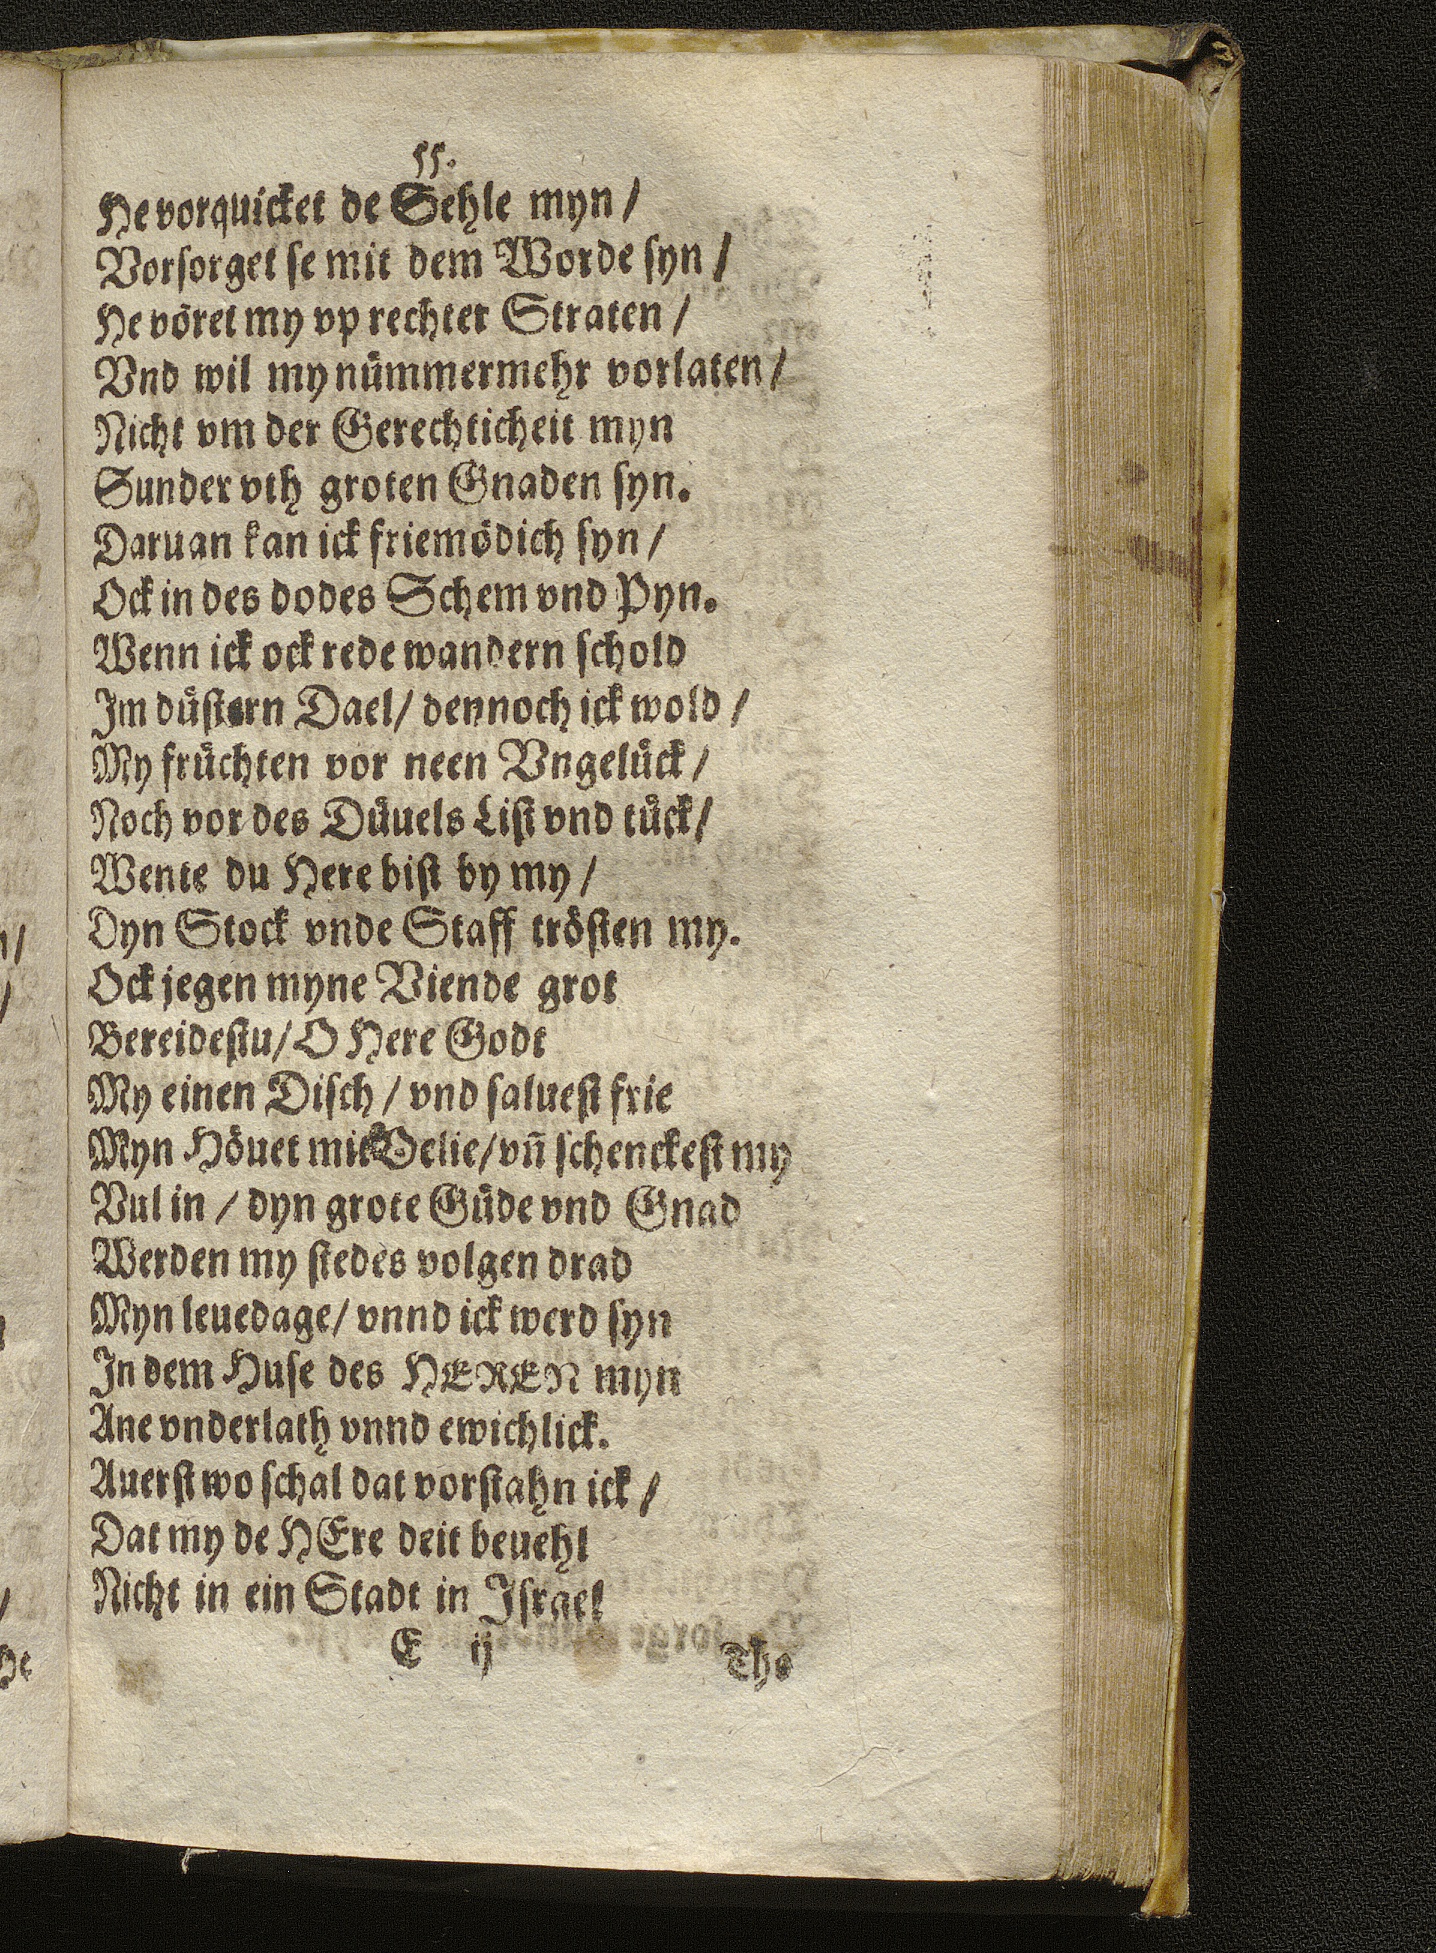 55.
He vorquicket de Sehle myn /
Vorsorget se mit dem Worde syn /
He vöret my vp rechter Straten /
Vnd wil my nümmermehr vorlaten /
Nicht vm der Gerechticheit myn
Sunder vth groten Gnaden syn.
Daruan kan ick friemödich syn /
Ock in des dodes Schem vnd Pyn.
Wenn ick ock rede wandern schold
Im düstern Dael / dennoch ick wold /
My früchten vor neen Vngelück /
Noch vor des Düuels List vnd tück /
Wente du Here bist by my /
Dyn Stock vnde Staff trösten my.
Ock jegen myne Viende grot
Bereidestu / O Here Godt
My einen Disch / vnd saluest frie
Myn Höuet mit Oelie / vñ schenckest my
Vul in / dyn grote Güde vnd Gnad
Werden my stedes volgen drad
Myn leuedage / vnnd ick werd syn
In dem Huse des HEREN myn
Ane vnderlath vnnd ewichlick.
Auerst wo schal dat vorstahn ick /
Dat my de HEre deit beuehl
Nicht in ein Stadt in Israel
E ij
Tho